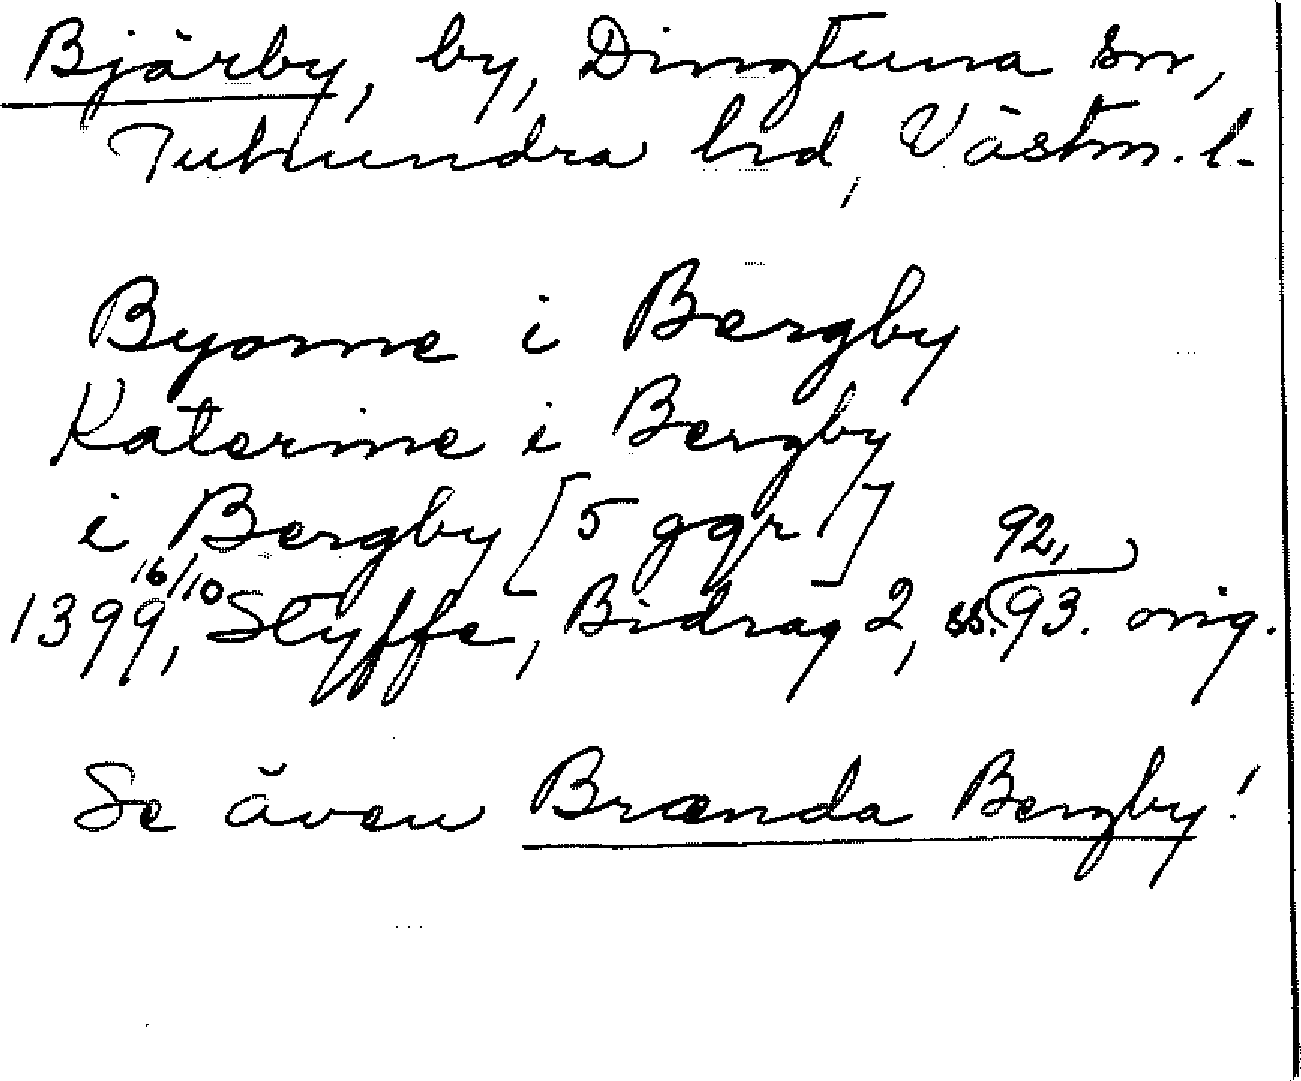 Bjärby, by, Dingtuna sn,
Tuhundra hrd, Västm. l.
Byorne i Bergby
Katerine i Bergby
i Bergby [5 ggr]
1399, 16/10 Styffe, Bidrag 2, ss. 92, 93. orig.
Se även Brænda Bergby!